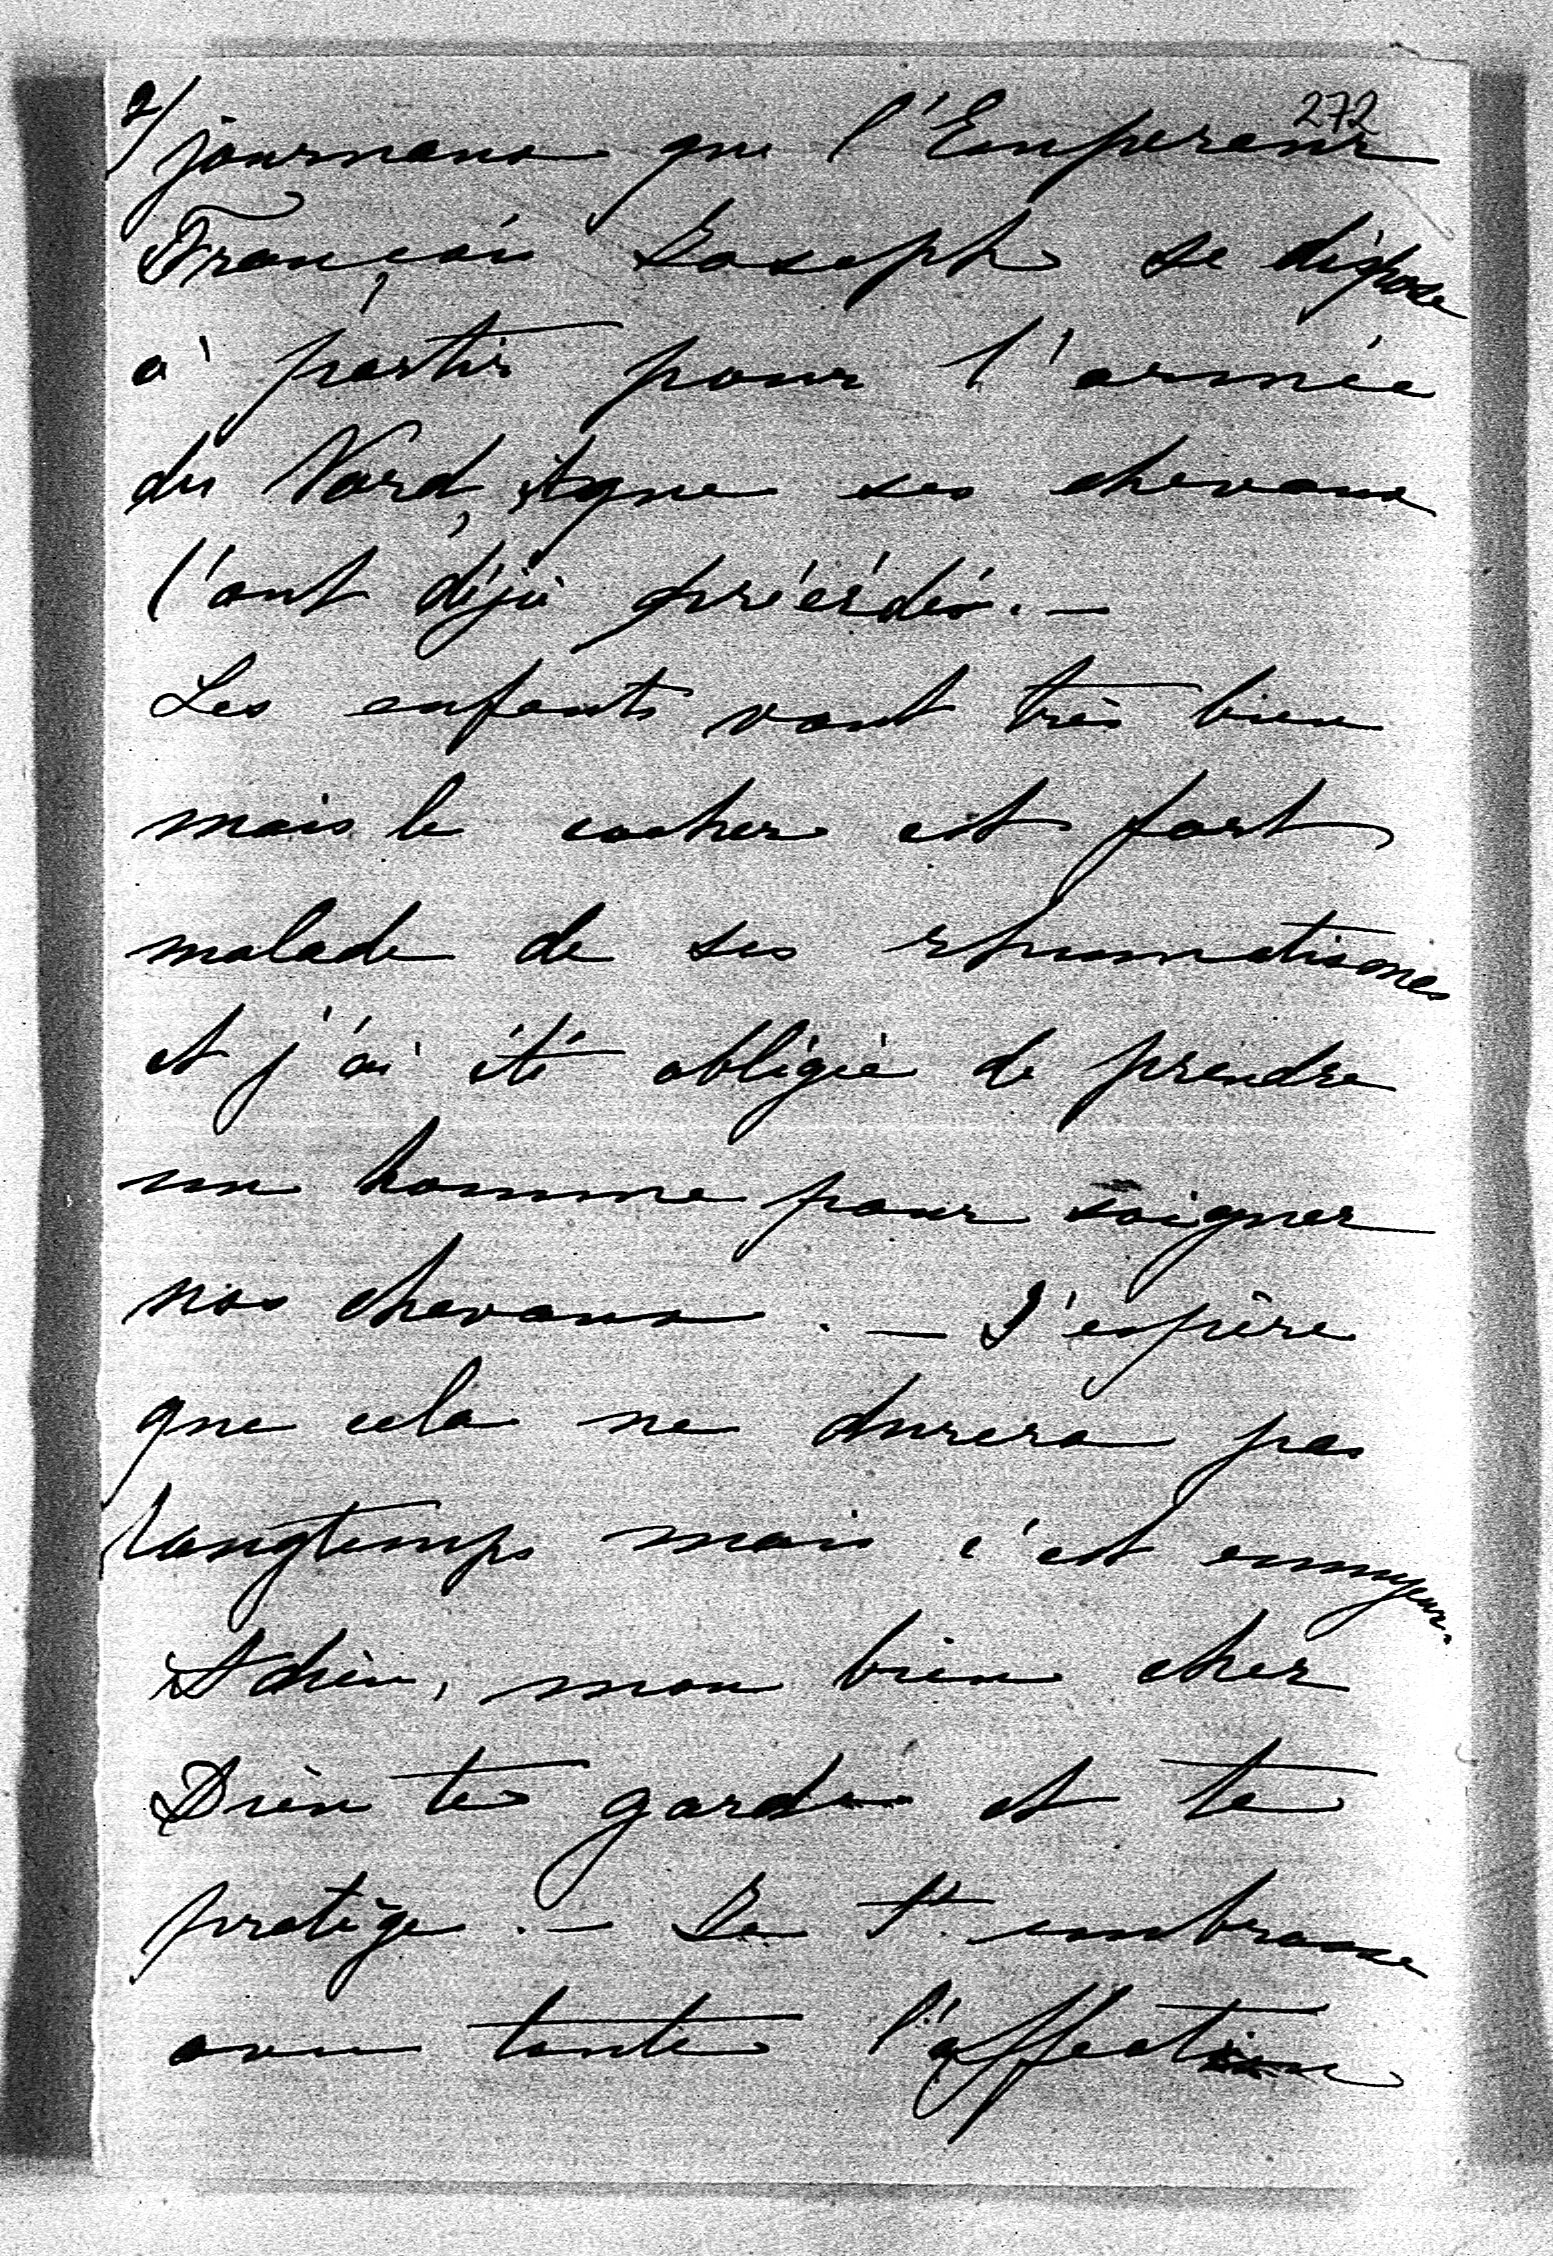 2/ 272
journaux que l'Empereur
François Joseph se dispose
à partir pour l'armée
du Nord, & que ses chevaux
l'ont déjà précédés. —
Les enfants vont très bien
mais le cocher est fort
malade de ses rhumatismes
et j'ai été obligée de prendre
un homme pour soigner
nos chevaux. — J'espère
que cela ne durera pas
longtemps mais c'est ennuyeux.
Adieu, mon bien cher
Dieu te garde et te
protège. — Je t'embrasse
avec toute l'affection